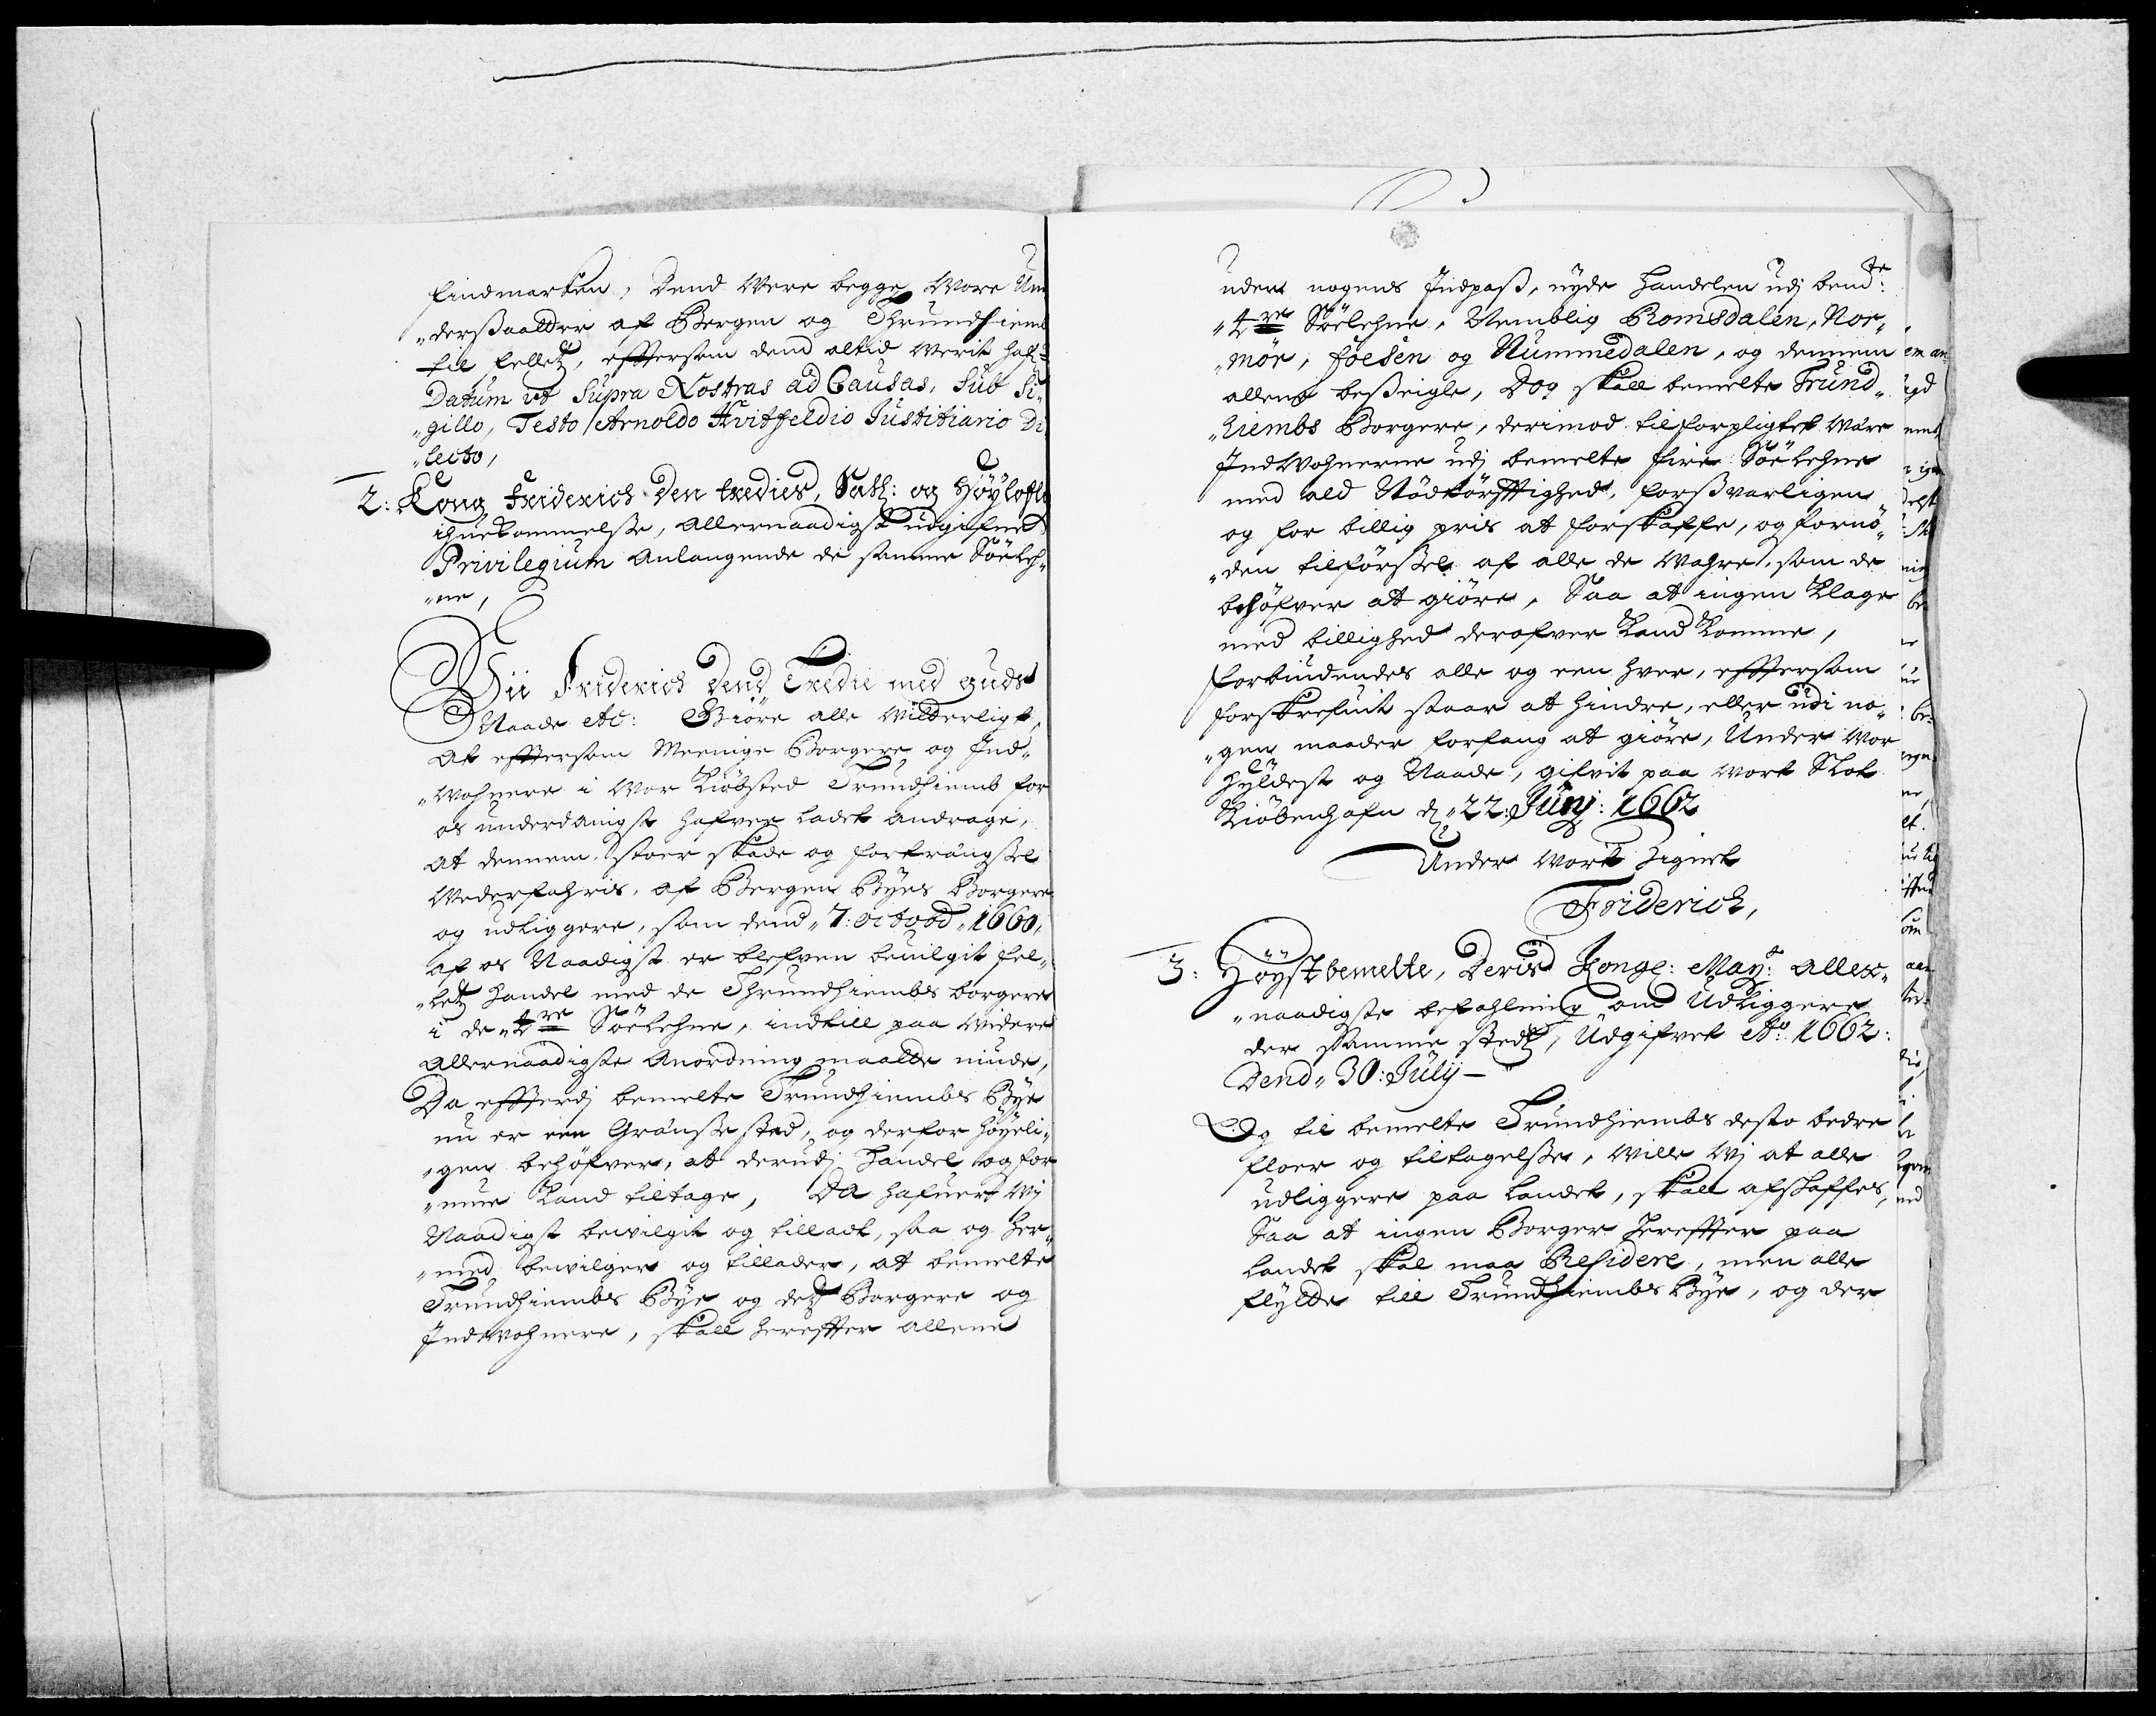 Findmarken, Dend Were begge Wore Un
„dersaatter af Bergen og Thrundhiemb
til felletz, efftersom dend altid Werit hafr
Datum ut Supra Nostras ad Causas, Sub Si„
„gillo, Testo Arnoldo Hvitfeldio Justitiario Di
„lecto,
2: Kong Friderich den tredies, Sal: og Höylofl
ihuekommelsse, allernaadigst udgifued
Privilegium Anlangende de samme Söeleh„
„ne,
Wii Friderich Dend Tredie med Guds
Naade etc: Giöre alle Witterligt,
At efftersom Meenige Borgere og Ind„
„Wohnere i Wor Kiöbsted Trundhiemb for
os underdanigst hafver ladet andrage,
at dennem stoer skade og forträngsel
Wederfahris, af Bergens Byes Borgere
og udliggere, som dend „7: octobd „1660,
af os Naadigst er blefven beuilgit fel„
„letz handel med de Thrundhiembs borgere
i de „4re Söelehne, indtill paa Widere
allernaadigste Anordning maatte niude,
Da effterdj bemelte Trundhiembs Bye
nu er een Gränsse sted, og derfor höyeli„
„gen behöfver, at derudj handel og for„
„mue Kand tiltage, Da hafuer Wij
Naadigst bewilgit og tilladt, saa og her„
„med bewilger og tillader, at bemelte
Trundhiembs Bye og detz Borgere og
Indwohnere, skall hereffter allene
uden nogens Indpass, nyde handelen udj bemte:
„4re Söelehne, Nemblig Romsdalen, Nor„
„mör, foesen og Nummedalen, og dennem
allene besseigle, Dog skall bemelte Trund„
„hiembs Borgere, derimod tilforpligtet Wäre
IndWohnerne udj bemelte fire Söelehne
med ald Nödtörfftighed, forssvarligen
og for billig pris at forskaffe, og fornö„
„den tilförssel af alle de Wahre, som de
behöfver at giöre, Saa at ingen Klage
med billighed derofver Kand Komme,
forbiudendes alle og een hver, efftersom
forskrefuit staar at hindre, eller udi no„
„gen maader forfang at giöre, Under Wor
Hyldest og Naade, gifvit paa Wort Slot
Kiöbenhafn d „22: Junj: 1662
Under Wort Signet
Friderich,
3: Höystbemelte, Deris Kongl: Mayt: aller„
„naadigste befahlning om Udliggere
der samme stedtz, Udgifvet Ao: 1662:
Dend „30: Julij –
Og til bemelte Trundhiembs desto bedre
floer og tiltagelsse, Wille Wj at alle
udliggere paa landet, skall afskaffes,
Saa at ingen Borger hereffter paa
landet skal maa Residere, men alle
flytte till Trundhiembs Bye, og der